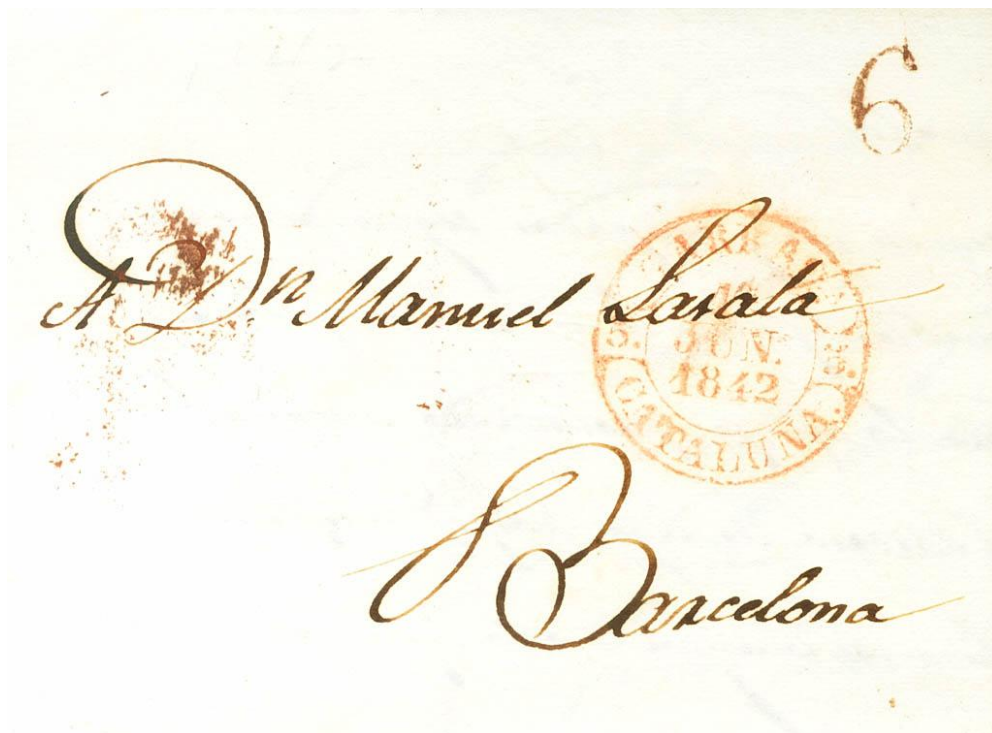 6
A Dn Manuel
JUN.
1842
CATALUÑA.
Barcelona